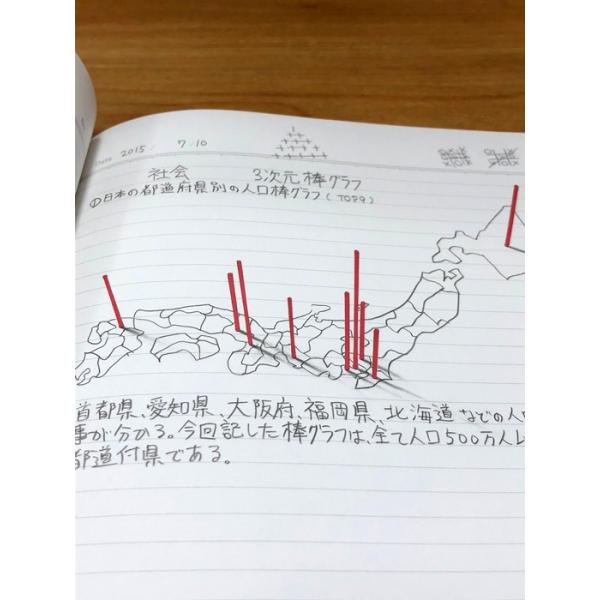 Date 2015/ 7/10
社会 3次元棒グラフ
①日本の都道府県別の人口棒グラフ(TOP9)
首都県、愛知県、大阪府、福岡県、北海道などの人口
事が分かる。今回記した棒グラフは、全て人口500万人以
都道付県である。